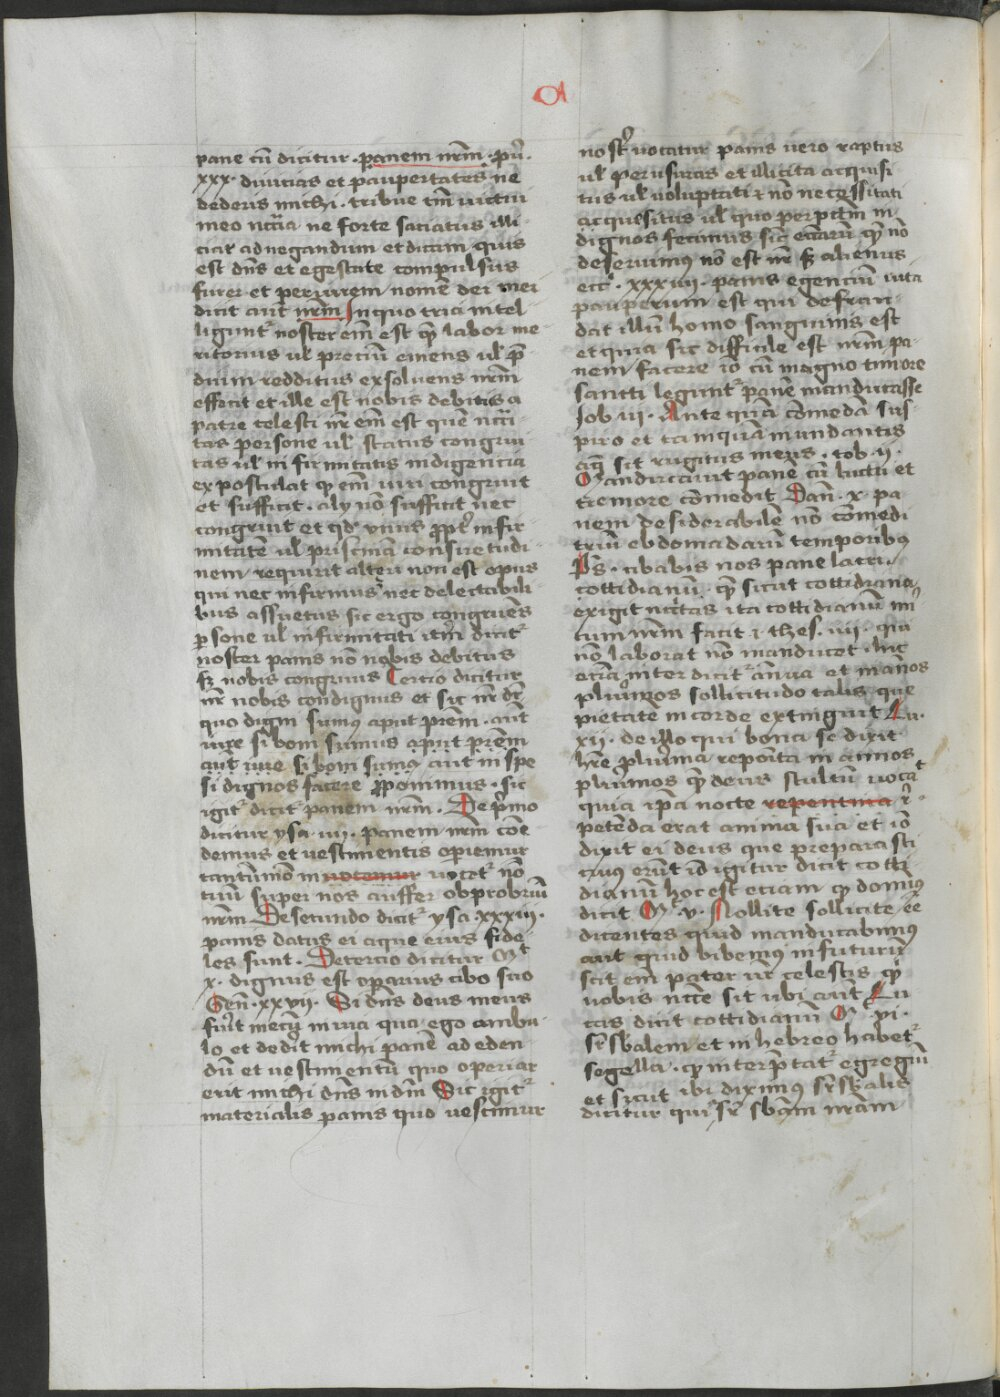 a
pane cū dicitur · panem nr̄m · pu͛ ·
xxx · diuicias et paupertates ne
dederis michi · tribue tm̄ uictui
meo ncc̄ia ne forte saciatus illi
ciar ad negandum et dicam quis
est dn̄s et egestate compulsus
furer et periurem nomē dei mei
dicit aūt nr̄m In quo tria intel
liguntᷣ noster em̄ est qz labor me
ritorius ul̄ preciū emens ul̄ p̄
dium redditus exsoluens nr̄m
efficit et ille est nobis debitus a
patre celesti nr̄ em̄ est quē ncc̄i
tas persone ul̄ status congrui
tas ul̄ infirmitatis indigencia
expostulat qz em̄ uiri congruit
et sufficit · alij nō sufficit nec
congruit et qd̄ vnus ꝓpt͛ infir
mitatē ul̄ pristinā consuetudi
nem requirit alteri non est opus
qui nec infirmus nec delectabili
bus assuetus sic ergo congruēs
ꝑsone ul̄ infirmitati itm̄ dicitᷣ
noster panis nō nobis debitus
sz nobis congruus Tercio dicitur
nr̄ nobis condignus et sic nr̄ dr̄
quo digni sumꝰ aput pr̄em · aūt
iure si boni sumus aput pr̄em
aut iure si boni sumꝰ aut in spe
si dignos facere ꝓponimus · sic
igitᷣ dicitᷣ panem nr̄m · De p͛mo
dicitur ysa · iiij · panem nr̄m cōe
demus et uestimentis operiemur
tantūmō in uocemur uocetᷣ nō
tuū super nos auffer obprobriū
nr̄m De secundo dicitᷣ ysa xxxiij ·
panis datus ei aque eius fide
les sunt · De tercio dicitur Mᵗ
x · dignus est operarius cibo suo
Gen̄ · xxviij · Si dn̄s deus meus
fu͛it mecū in uia qua ego ambu
lo et ded͛it michi panē ad eden
dū et uestimentū quo operiar
erit michi dn̄s in dm̄ Sic igitᷣ
materialis panis quo uescimur
nost͛ uocatur panis uero raptus
ul̄ per usuras et illicita acquisi
tus ul̄ uoluptati ⁊ non necessitati
acquesitus ul̄ quo per pctm̄ in
dignos fecimus sic etiam qz nō
deseruimꝰ nō est nr̄ sz alienus
ecc̄ · xxxiiij · panis egenciū uita
pauperum est qui defrau
dat illū homo sanguinis est
et quia sic difficile est nr̄m pa
nem facere iō cū magno timore
sancti leguntᷣ panē manducasse
Job iij · Ante quā cōmedā sus
piro et tamquā inundantis
aqᷓ sit rugitus meus · tob · ij ·
Manducauit panē cū luctu et
tremore cōmedit Dan̄ · x · pa
nem desiderabilē nō cōmedi
triū ebdomadarū temporibꝰ
Ps̄ · cibabis nos pane lacri ·
cottidianū · qz sicut cottidiana
exigit ncc̄itas ita cottidianū mi͛
tum nr̄m facit ⁊ thes̄ · iij · qui
nō laborat nō manducet · hic
etiā inter dicitᷣ ānua et in an̄os
plurimos sollicitudo talis que
pietatē in corde extinguit Lu ·
xij · de illo qui bona se dixit
hr̄e plurima reposita in annos
plurimos qz deus stultū uocaᵗ
quia ip̄a nocte repentina r͛ ·
petēda erat anima sua et iō
dixit ei deus que preparasti
cuius erūt id igitur dicit cotti
dianū hoc est etiam qz domīꝰ
dicit Mᵗ · v · Nollite solliciti eē
dicentes quid manducabimꝰ
aut quid bibemꝰ in futurū
scit em̄ pater ur̄ celestis qz
uobis nccē sit ubi aūt Lu
cas dicit cottidianū Mᵗ · vi ·
sr̄sb̄alem et in hebreo habetᷣ
segella · qz interp̄tatᷣ egregiū
et sicut ibi diximꝰ sr̄sb̄alis
dicitur qui sr̄ sb̄am nr̄am